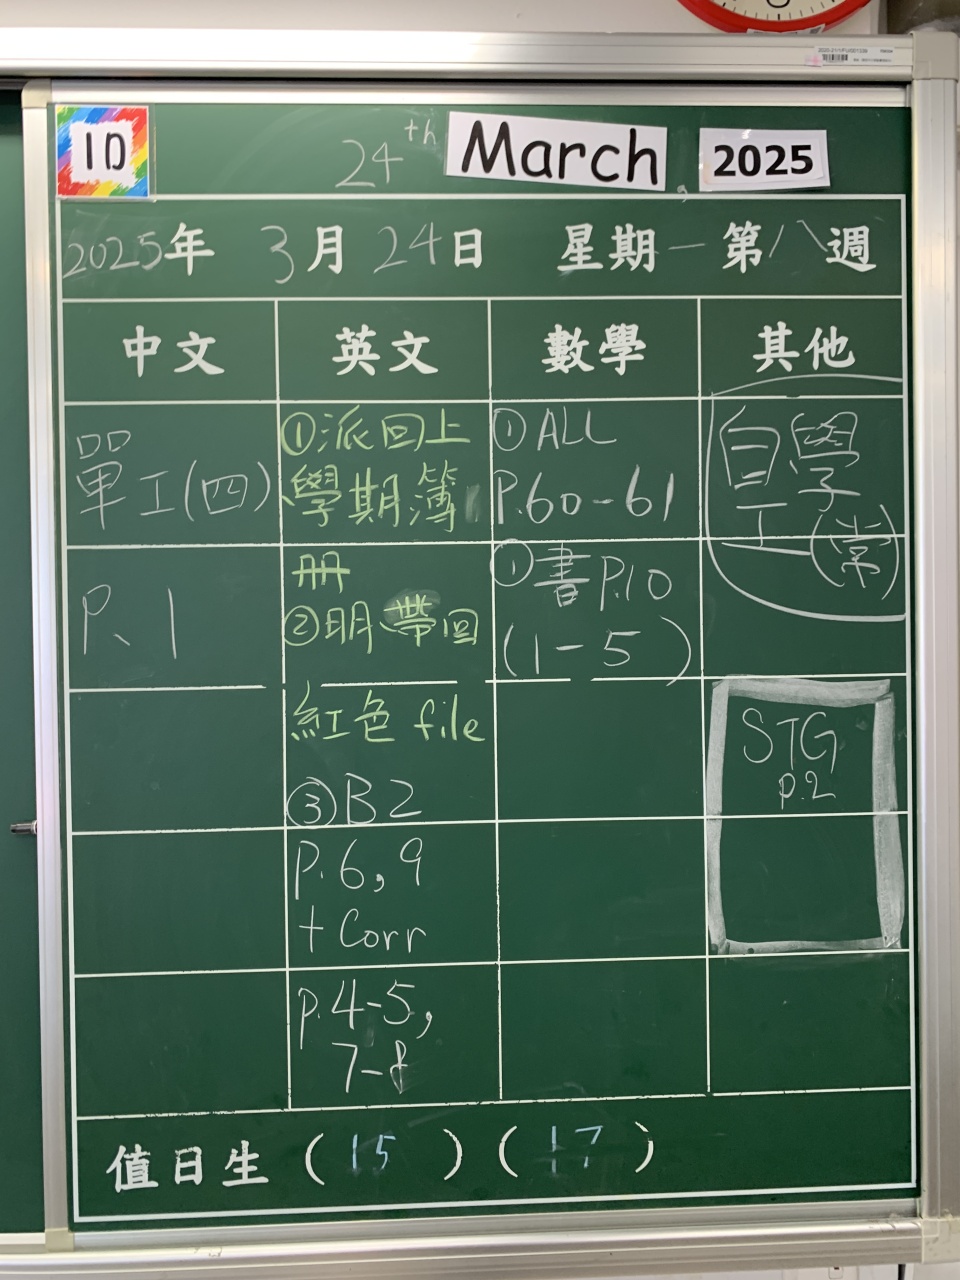 1D
24th March, 2025
2025年 3月24日 星期一 第八週
中文
英文
數學
其他
單工(四)
P.1
①派回上
學期簿
冊
②明帶回
紅色 file
③B2
P.6,9
+ Corr
p.4-5,
7-8
①ALL
P.60-61
①書P.10
(1-5)
自學
工(常)
STG
p.2
值日生 (15) (17)